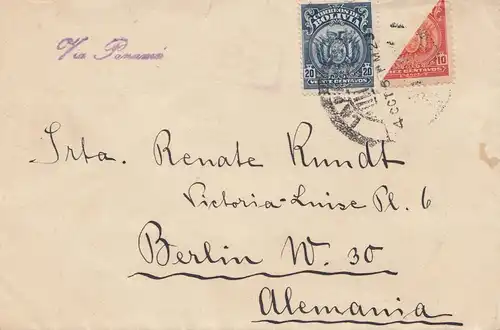 Via Panamá
CORREOS DE
BOLIVIA
20 20
VEINTE CENTAVOS
10
DIEZ CENTAVOS
4 OCT
Srta. Renate Kundt
Victoria-Luise Pl. 6
Berlin W. 30
Alemania